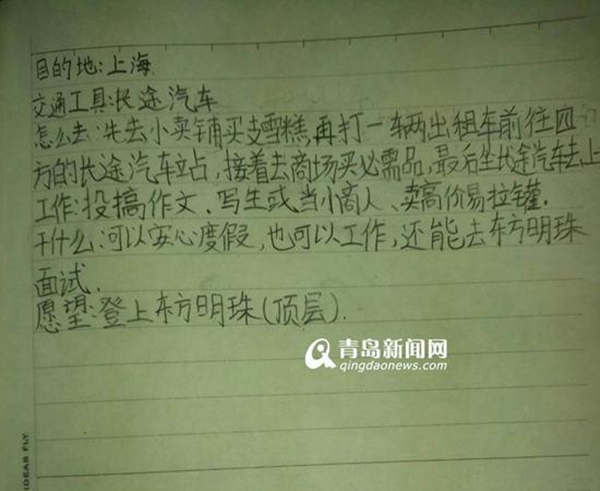 目的地:上海
交通工具:长途汽车
怎么去:先去小卖铺买支雪糕,再打一车两出租车前往四
方的长途汽车站,接着去商场买必需品,最后坐长途汽车去上
工作:投搞作文、写生或当小商人、卖高价易拉罐.
干什么:可以安心度假,也可以工作,还能去东方明珠
面试.
愿望:登上东方明珠(顶层).
青岛新闻网
qingdaonews.com
IDEAS FLY